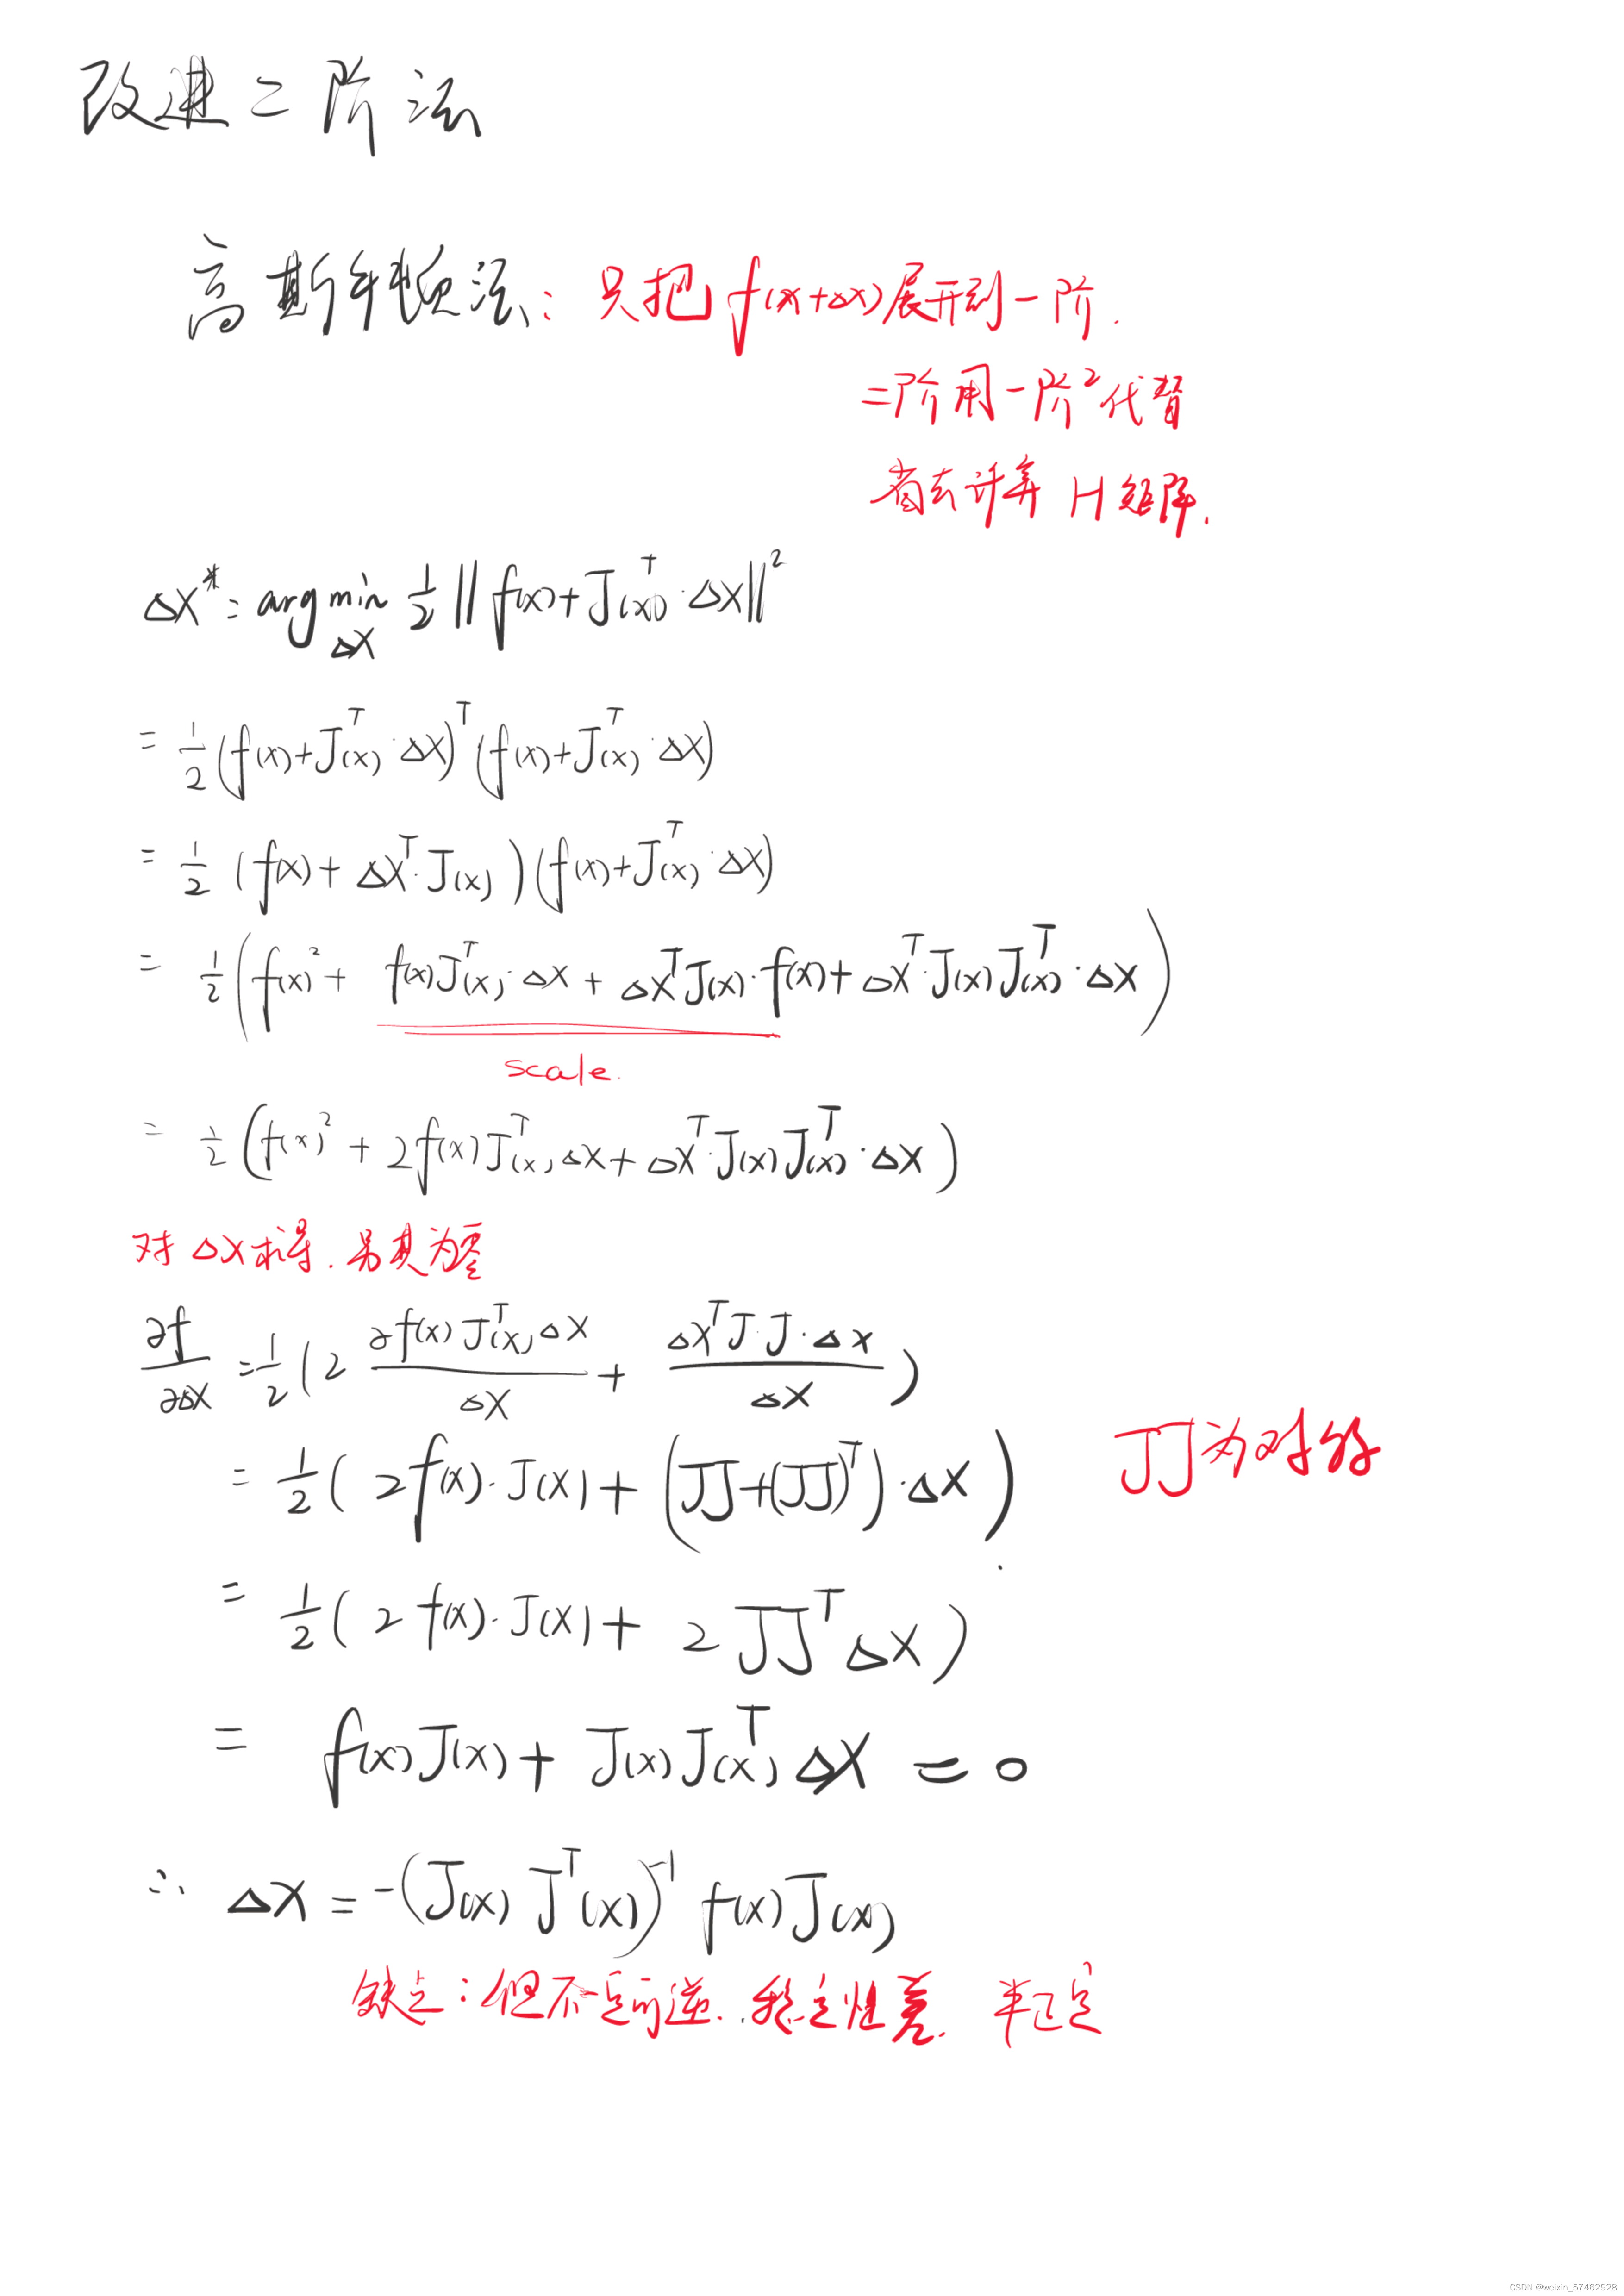 改进二阶法
高斯牛顿法: 只把 f(x+Δx)展开到一阶.
二阶用一阶²代替
省去计算 H 矩阵.
ΔX* = arg min_{ΔX} 1/2 ||f(x)+J(x)^T·ΔX||²
= 1/2 (f(x)+J(x)^T·ΔX)^T (f(x)+J(x)^T·ΔX)
= 1/2 (f(x)+ΔX^T·J(x))(f(x)+J(x)^T·ΔX)
= 1/2 (f(x)² + f(x)J(x)^T·ΔX + ΔX^T J(x)·f(x) + ΔX^T·J(x)J(x)^T·ΔX)
scale.
= 1/2 (f(x)² + 2f(x)J(x)^T ΔX + ΔX^T·J(x)J(x)^T·ΔX)
对 ΔX求导. 另其为零
∂f/∂ΔX = 1/2 (2 ∂f(x)J(x)^T ΔX/ΔX + ΔX^T J·J·ΔX/ΔX)
= 1/2 (2f(x)·J(X) + (JJ+(JJ)^T)·ΔX) JJ为对称
= 1/2 (2f(x)·J(X) + 2JJ^T ΔX)
= f(x)J(x) + J(x)J(x)^T ΔX = 0
∴ ΔX = -(J(x)J^T(x))^-1 f(x)J(x)
缺点:但不一定可逆. 稳定性差. 半正定
CSDN @weixin_57462928